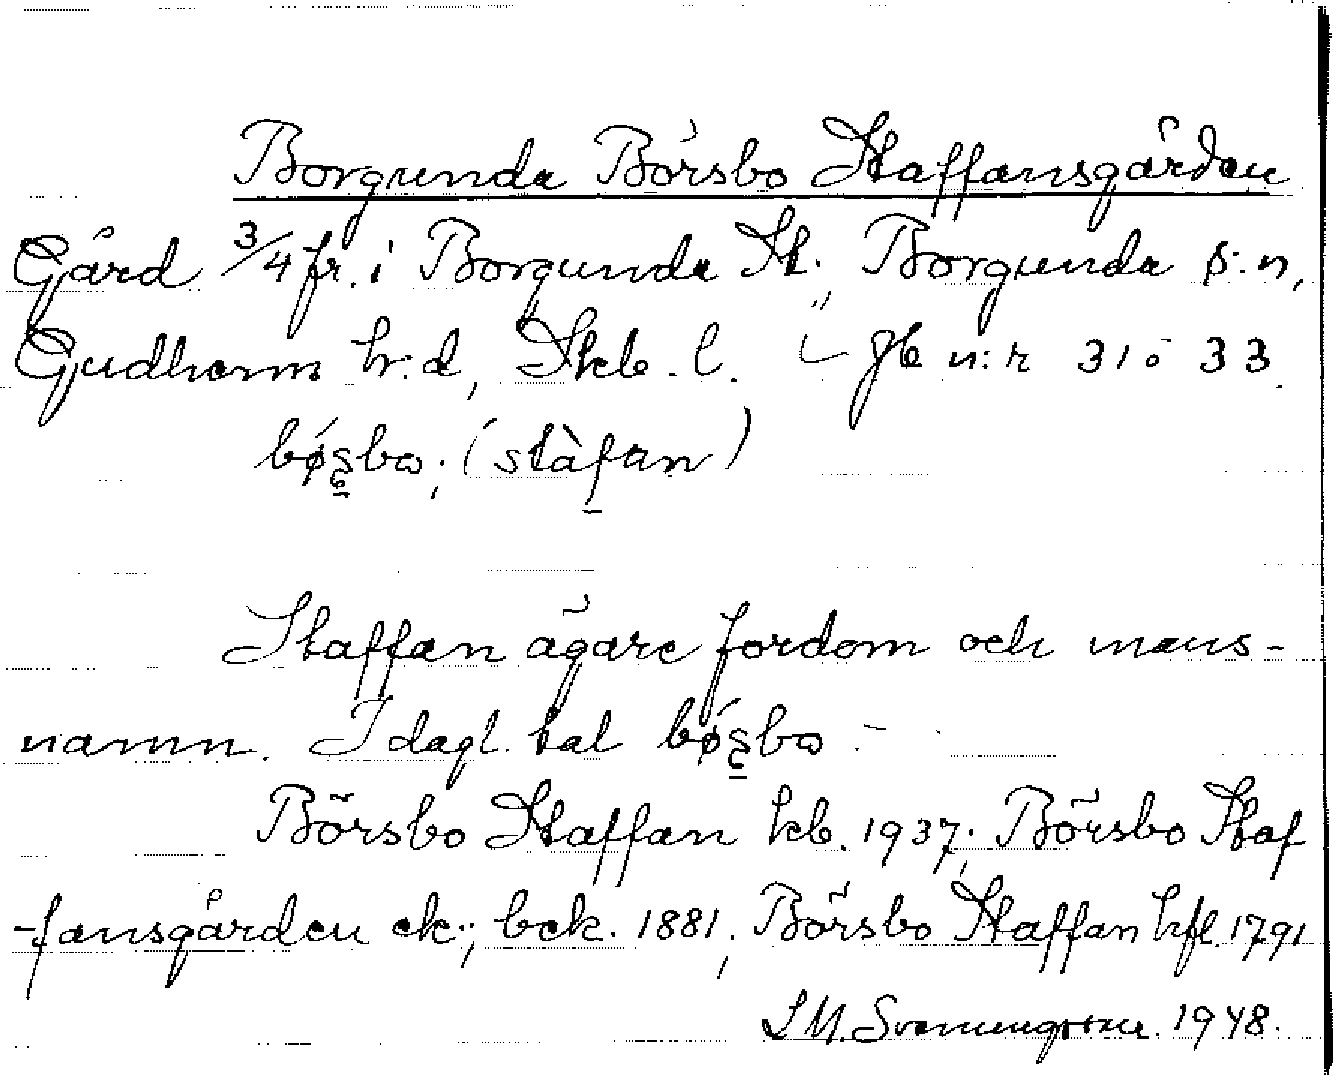 Borgunda Börsbo Staffansgården
Gård 3/4 fr. i Borgunda St., Borgunda s:n,
Gudhems hr:d, Skb. l. jb n:r 31 o 33.
bǿs̨bo; (stàfan)
Staffan ägare fordom och mans-
namn. I dagl. tal bǿs̨bo.-
Börsbo Staffan kb. 1937; Börsbo Staf
-fansgården ek.; bek. 1881; Börsbo Staffan hfl. 1791
S M. Svenungsson. 1948.